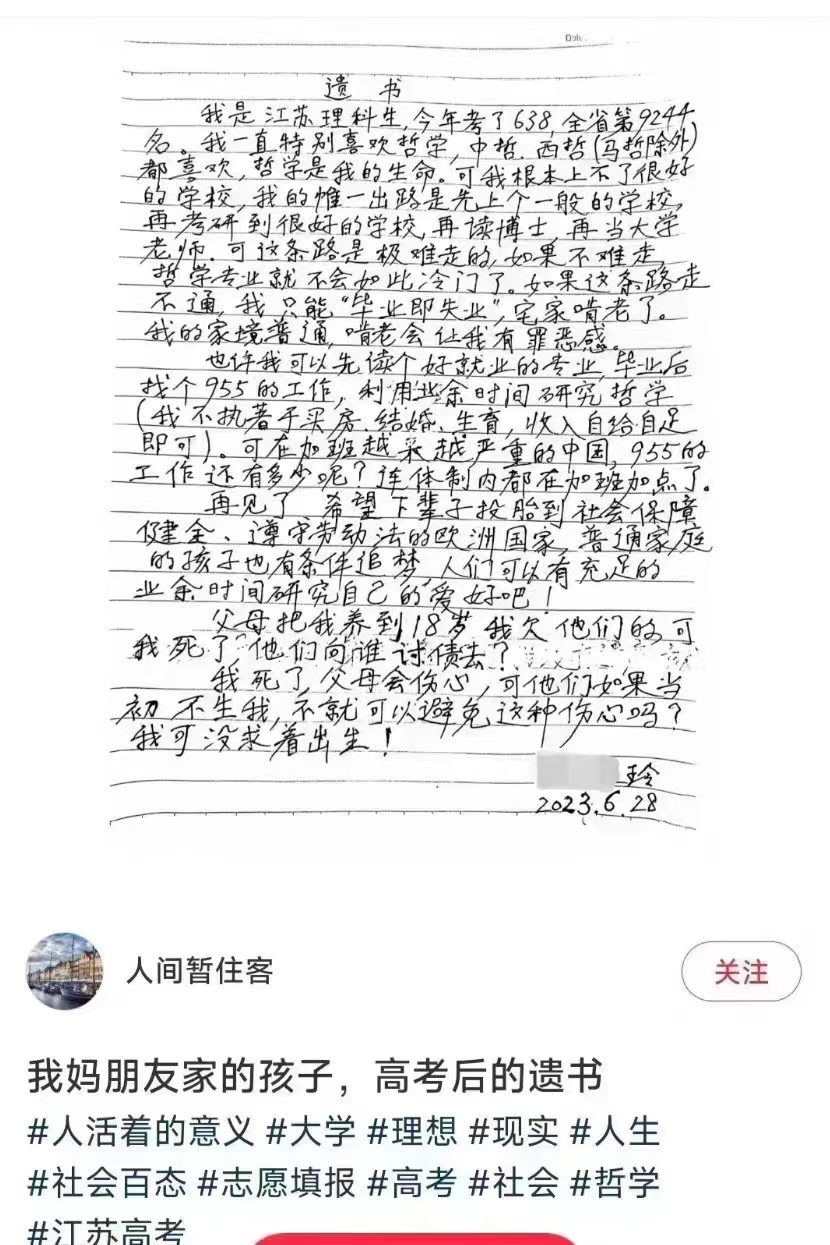 Date.
遗 书
我是江苏理科生,今年考了638,全省第9244
名。我一直特别喜欢哲学,中哲.西哲(马哲除外)
都喜欢,哲学是我的生命。可我根本上不了很好
的学校,我的惟一出路是先上个一般的学校,
再考研到很好的学校,再读博士,再当大学
老师.可这条路是极难走的,如果不难走,
哲学专业就不会如此冷门了。如果这条路走
不通,我只能“毕业即失业”,宅家啃老了。
我的家境普通,啃老会让我有罪恶感。
也许我可以先读个好就业的专业,毕业后
找个955的工作,利用业余时间研究哲学
(我不执著于买房.结婚、生育,收入自给自足
即可)。可在加班越来越严重的中国,955的
工作还有多少呢?连体制内都在加班加点了。
再见了,希望下辈子投胎到社会保障
健全、遵守劳动法的欧洲国家,普通家庭
的孩子也有条件追梦,人们可以有充足的
业余时间研究自己的爱好吧!
父母把我养到18岁,我欠他们的.可
我死了,他们向谁讨债去?
我死了,父母会伤心,可他们如果当
初不生我,不就可以避免这种伤心吗?
我可没求着出生!
玲
2023.6.28
人间暂住客
关注
我妈朋友家的孩子，高考后的遗书
#人活着的意义 #大学 #理想 #现实 #人生
#社会百态 #志愿填报 #高考 #社会 #哲学
#江苏高考